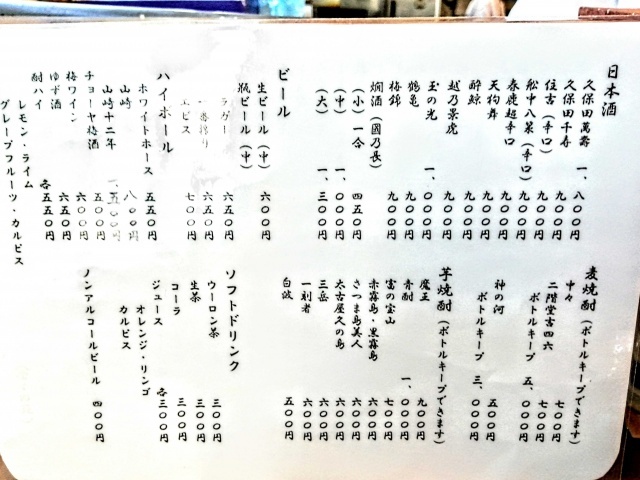 日本酒
久保田萬壽 一、八〇〇円
久保田千寿 九〇〇円
住吉（辛口） 九〇〇円
船中八策（辛口） 九〇〇円
春鹿超辛口 九〇〇円
天狗舞 九〇〇円
酔鯨 九〇〇円
越乃景虎 九〇〇円
玉の光 一、〇〇〇円
鶴亀 九〇〇円
梅錦 九〇〇円
燗酒（國乃長）
（小）一合 四五〇円
（中） 一、〇〇〇円
（大） 一、三〇〇円
ビール
生ビール（中） 六〇〇円
瓶ビール（中）
ラガー 六五〇円
一番搾り 六五〇円
エビス 七〇〇円
ハイボール
ホワイトホース 五五〇円
山崎 八〇〇円
山崎十二年 一、五〇〇円
チョーヤ梅酒 五〇〇円
梅ワイン 六〇〇円
ゆず酒 六五〇円
酎ハイ 各五五〇円
レモン・ライム
グレープフルーツ・カルピス
麦焼酎（ボトルキープできます）
中々 七〇〇円
二階堂吉四六 七〇〇円
ボトルキープ 五、〇〇〇円
神の河 五〇〇円
ボトルキープ 三、〇〇〇円
芋焼酎（ボトルキープできます）
魔王 九〇〇円
青酎 一、〇〇〇円
富の宝山 七〇〇円
赤霧島・黒霧島 六〇〇円
さつま島美人 六〇〇円
太古屋久の島 六〇〇円
三岳 六〇〇円
一刻者 六〇〇円
白波 五〇〇円
ソフトドリンク
ウーロン茶 三〇〇円
生茶 三〇〇円
コーラ 三〇〇円
ジュース 各三〇〇円
オレンジ・リンゴ
カルピス
ノンアルコールビール 四〇〇円